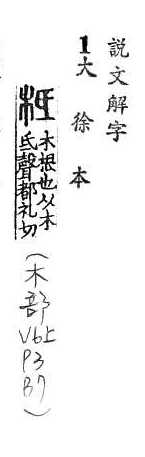 説文解字
1大徐本
柢 木根也从木
氐聲都礼切
(木部
V6上
P3
B7)